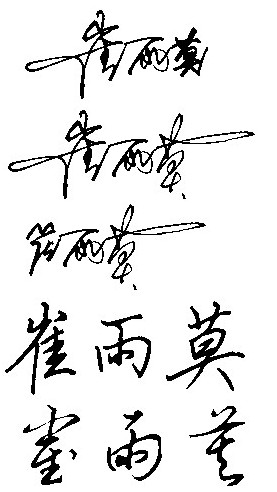 崔雨莫
崔雨莫
崔雨莫
崔雨莫
崔雨莫